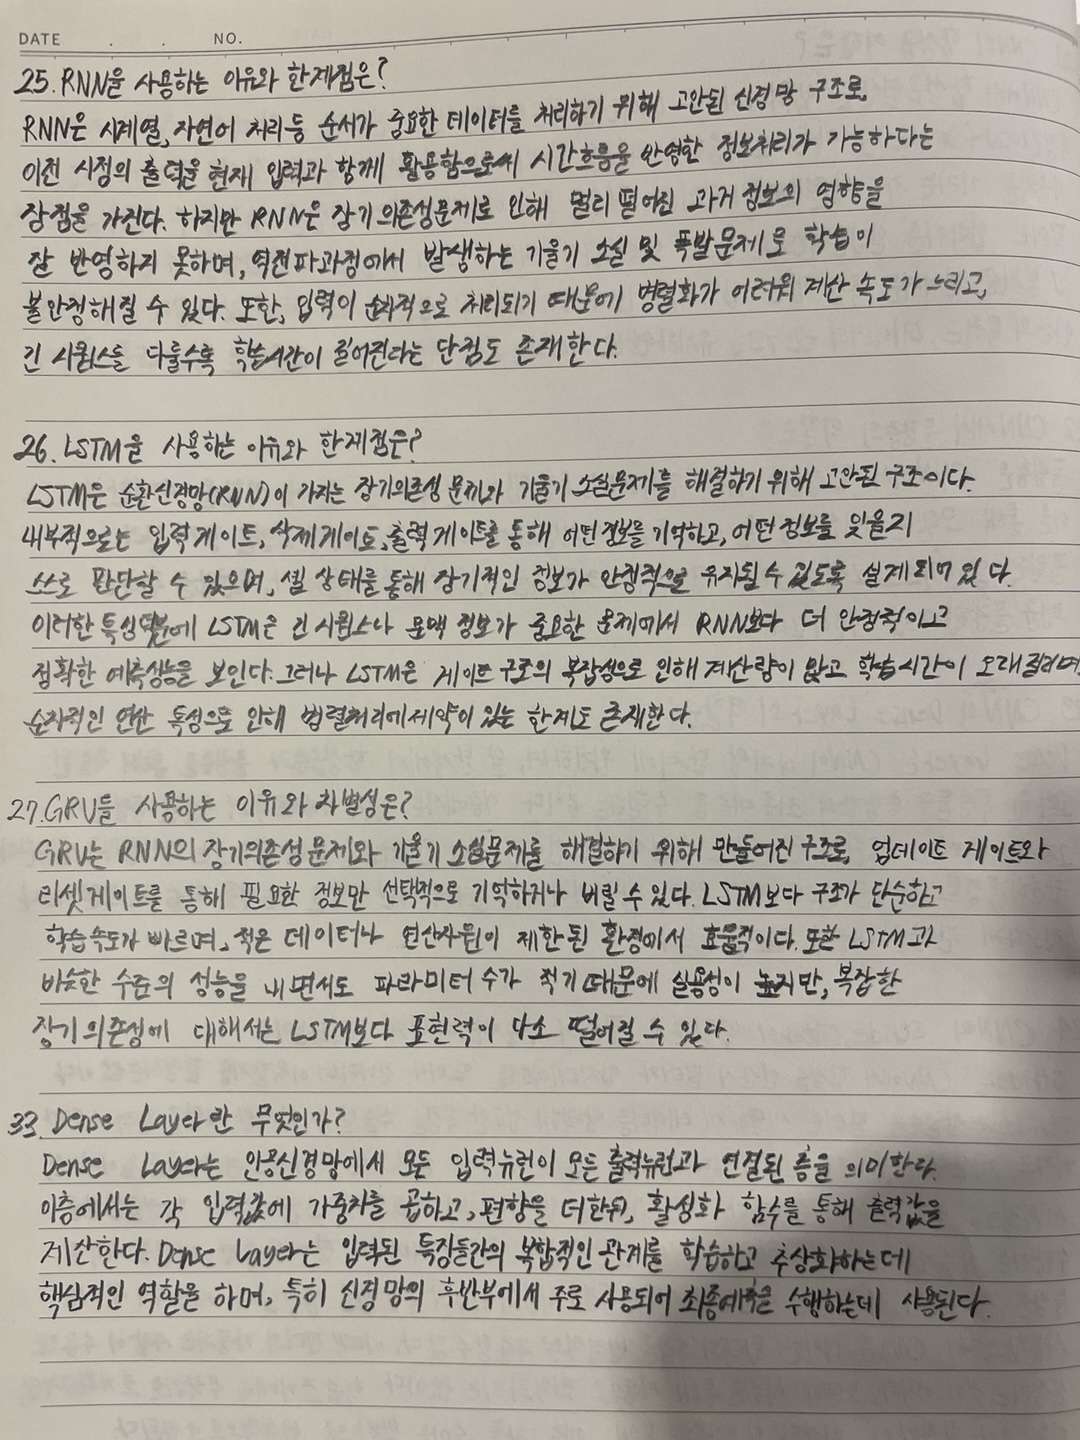 DATE . . NO.
25. RNN을 사용하는 이유와 한계점은?
RNN은 시계열, 자연어 처리등 순서가 중요한 데이터를 처리하기 위해 고안된 신경망 구조로,
이전 시점의 출력을 현재 입력과 함께 활용함으로써 시간흐름을 반영한 정보처리가 가능하다는
장점을 가진다. 하지만 RNN은 장기 의존성문제로 인해 멀리 떨어진 과거 정보의 영향을
잘 반영하지 못하며, 역전파과정에서 발생하는 기울기 소실 및 폭발문제로 학습이
불안정해질 수 있다. 또한, 입력이 순차적으로 처리되기 때문에 병렬화가 어려워 계산 속도가 느리고,
긴 시퀀스를 다룰수록 학습시간이 길어진다는 단점도 존재한다.
26. LSTM을 사용하는 이유와 한계점은?
LSTM은 순환신경망(RNN)이 가지는 장기의존성 문제와 기울기 소실문제를 해결하기 위해 고안된 구조이다.
내부적으로는 입력게이트, 삭제게이트, 출력게이트를 통해 어떤정보를 기억하고, 어떤정보를 잊을지
스스로 판단할 수 있으며, 셀 상태를 통해 장기적인 정보가 안정적으로 유지될 수 있도록 설계되어 있다.
이러한 특성덕분에 LSTM은 긴 시퀀스나 문맥 정보가 중요한 문제에서 RNN보다 더 안정적이고
정확한 예측성능을 보인다. 그러나 LSTM은 게이트 구조의 복잡성으로 인해 계산량이 많고 학습시간이 오래걸리며
순차적인 연산 특성으로 인해 병렬처리에제약이 있는 한계도 존재한다.
27. GRU를 사용하는 이유와 차별성은?
GRU는 RNN의 장기의존성 문제와 기울기 소실문제를 해결하기 위해 만들어진 구조로, 업데이트 게이트와
리셋게이트를 통해 필요한 정보만 선택적으로 기억하거나 버릴 수 있다. LSTM보다 구조가 단순하고
학습속도가 빠르며, 적은 데이터나 연산자원이 제한된 환경에서 효율적이다. 또한 LSTM과
비슷한 수준의 성능을 내면서도 파라미터 수가 적기 때문에 실용성이 높지만, 복잡한
장기의존성에 대해서는 LSTM보다 표현력이 다소 떨어질 수 있다.
33. Dense Layer란 무엇인가?
Dense Layer는 인공신경망에서 모든 입력뉴런이 모든 출력뉴런과 연결된 층을 의미한다.
이층에서는 각 입력값에 가중치를 곱하고, 편향을 더한뒤, 활성화 함수를 통해 출력값을
계산한다. Dense Layer는 입력된 특징들간의 복합적인 관계를 학습하고 추상화하는데
핵심적인 역할을 하며, 특히 신경망의 후반부에서 주로 사용되어 최종예측을 수행하는데 사용된다.